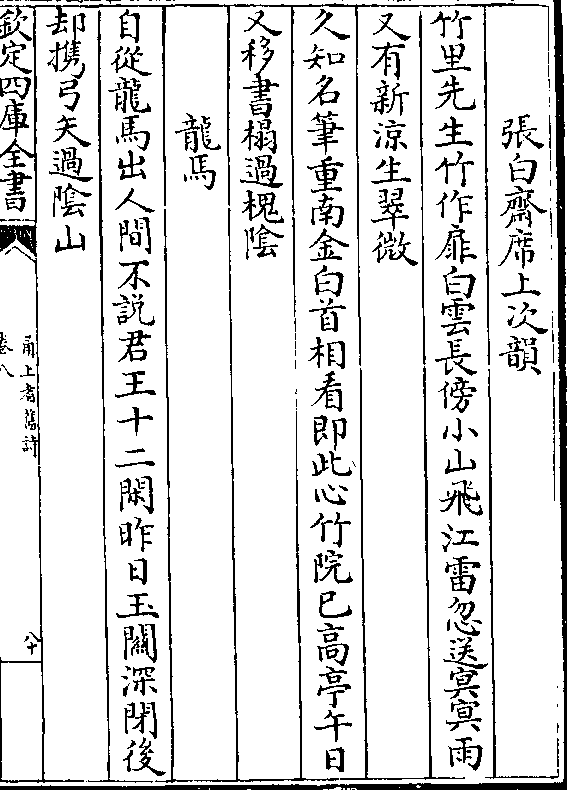 張白齋席上次韻
竹里先生竹作扉白雲長傍小山飛江雷忽送㝠㝠雨
又有新涼生翠微
久知名筆重南金白首相看即此心竹院已高亭午日
又移書榻過槐陰
龍馬
自從龍馬出人間不説君王十二閑昨日玉關深閉後
却攜弓矢過陰山
欽定四庫全書
甬上耆舊詩
卷八
八十